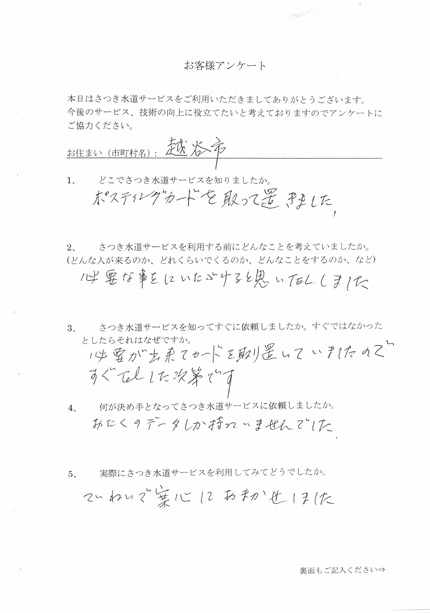 お客様アンケート
本日はさつき水道サービスをご利用いただきましてありがとうございます。
今後のサービス、技術の向上に役立てたいと考えておりますのでアンケートに
ご協力ください。
お住まい（市町村名）: 越谷市
1、 どこでさつき水道サービスを知りましたか。
ポスティングカードを取って置きました、
2、 さつき水道サービスを利用する前にどんなことを考えていましたか。
(どんな人が来るのか、どれくらいでくるのか、どんなことをするのか、など)
必要な事をしていただけると思いTELしました
3、 さつき水道サービスを知ってすぐに依頼しましたか。すぐではなかった
としたらそれはなぜですか。
必要が出来てカードを取り置いていましたので
すぐTelした次第です
4、 何が決め手となってさつき水道サービスに依頼しましたか。
おたくのデータしか持っていませんでした
5、 実際にさつき水道サービスを利用してみてどうでしたか。
ていねいで安心しておまかせしました
裏面もご記入ください⇒